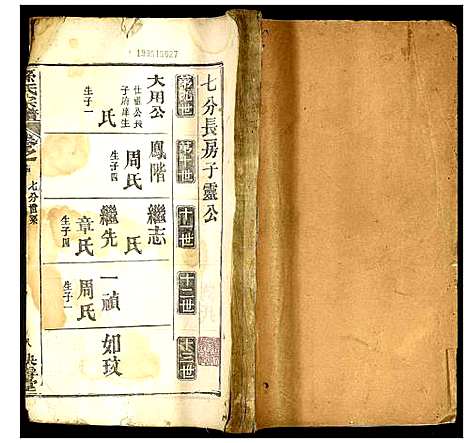 七分長房子靈公
第九世
大用公
仕靈公長
子府庠生
氏
生子一
第十世
鳳階
周氏
生子四
十一世
繼志
氏
繼先
章氏
生子四
十二世
一禎
周氏
生子一
十三世
如玟
孫氏宗譜
七分世系